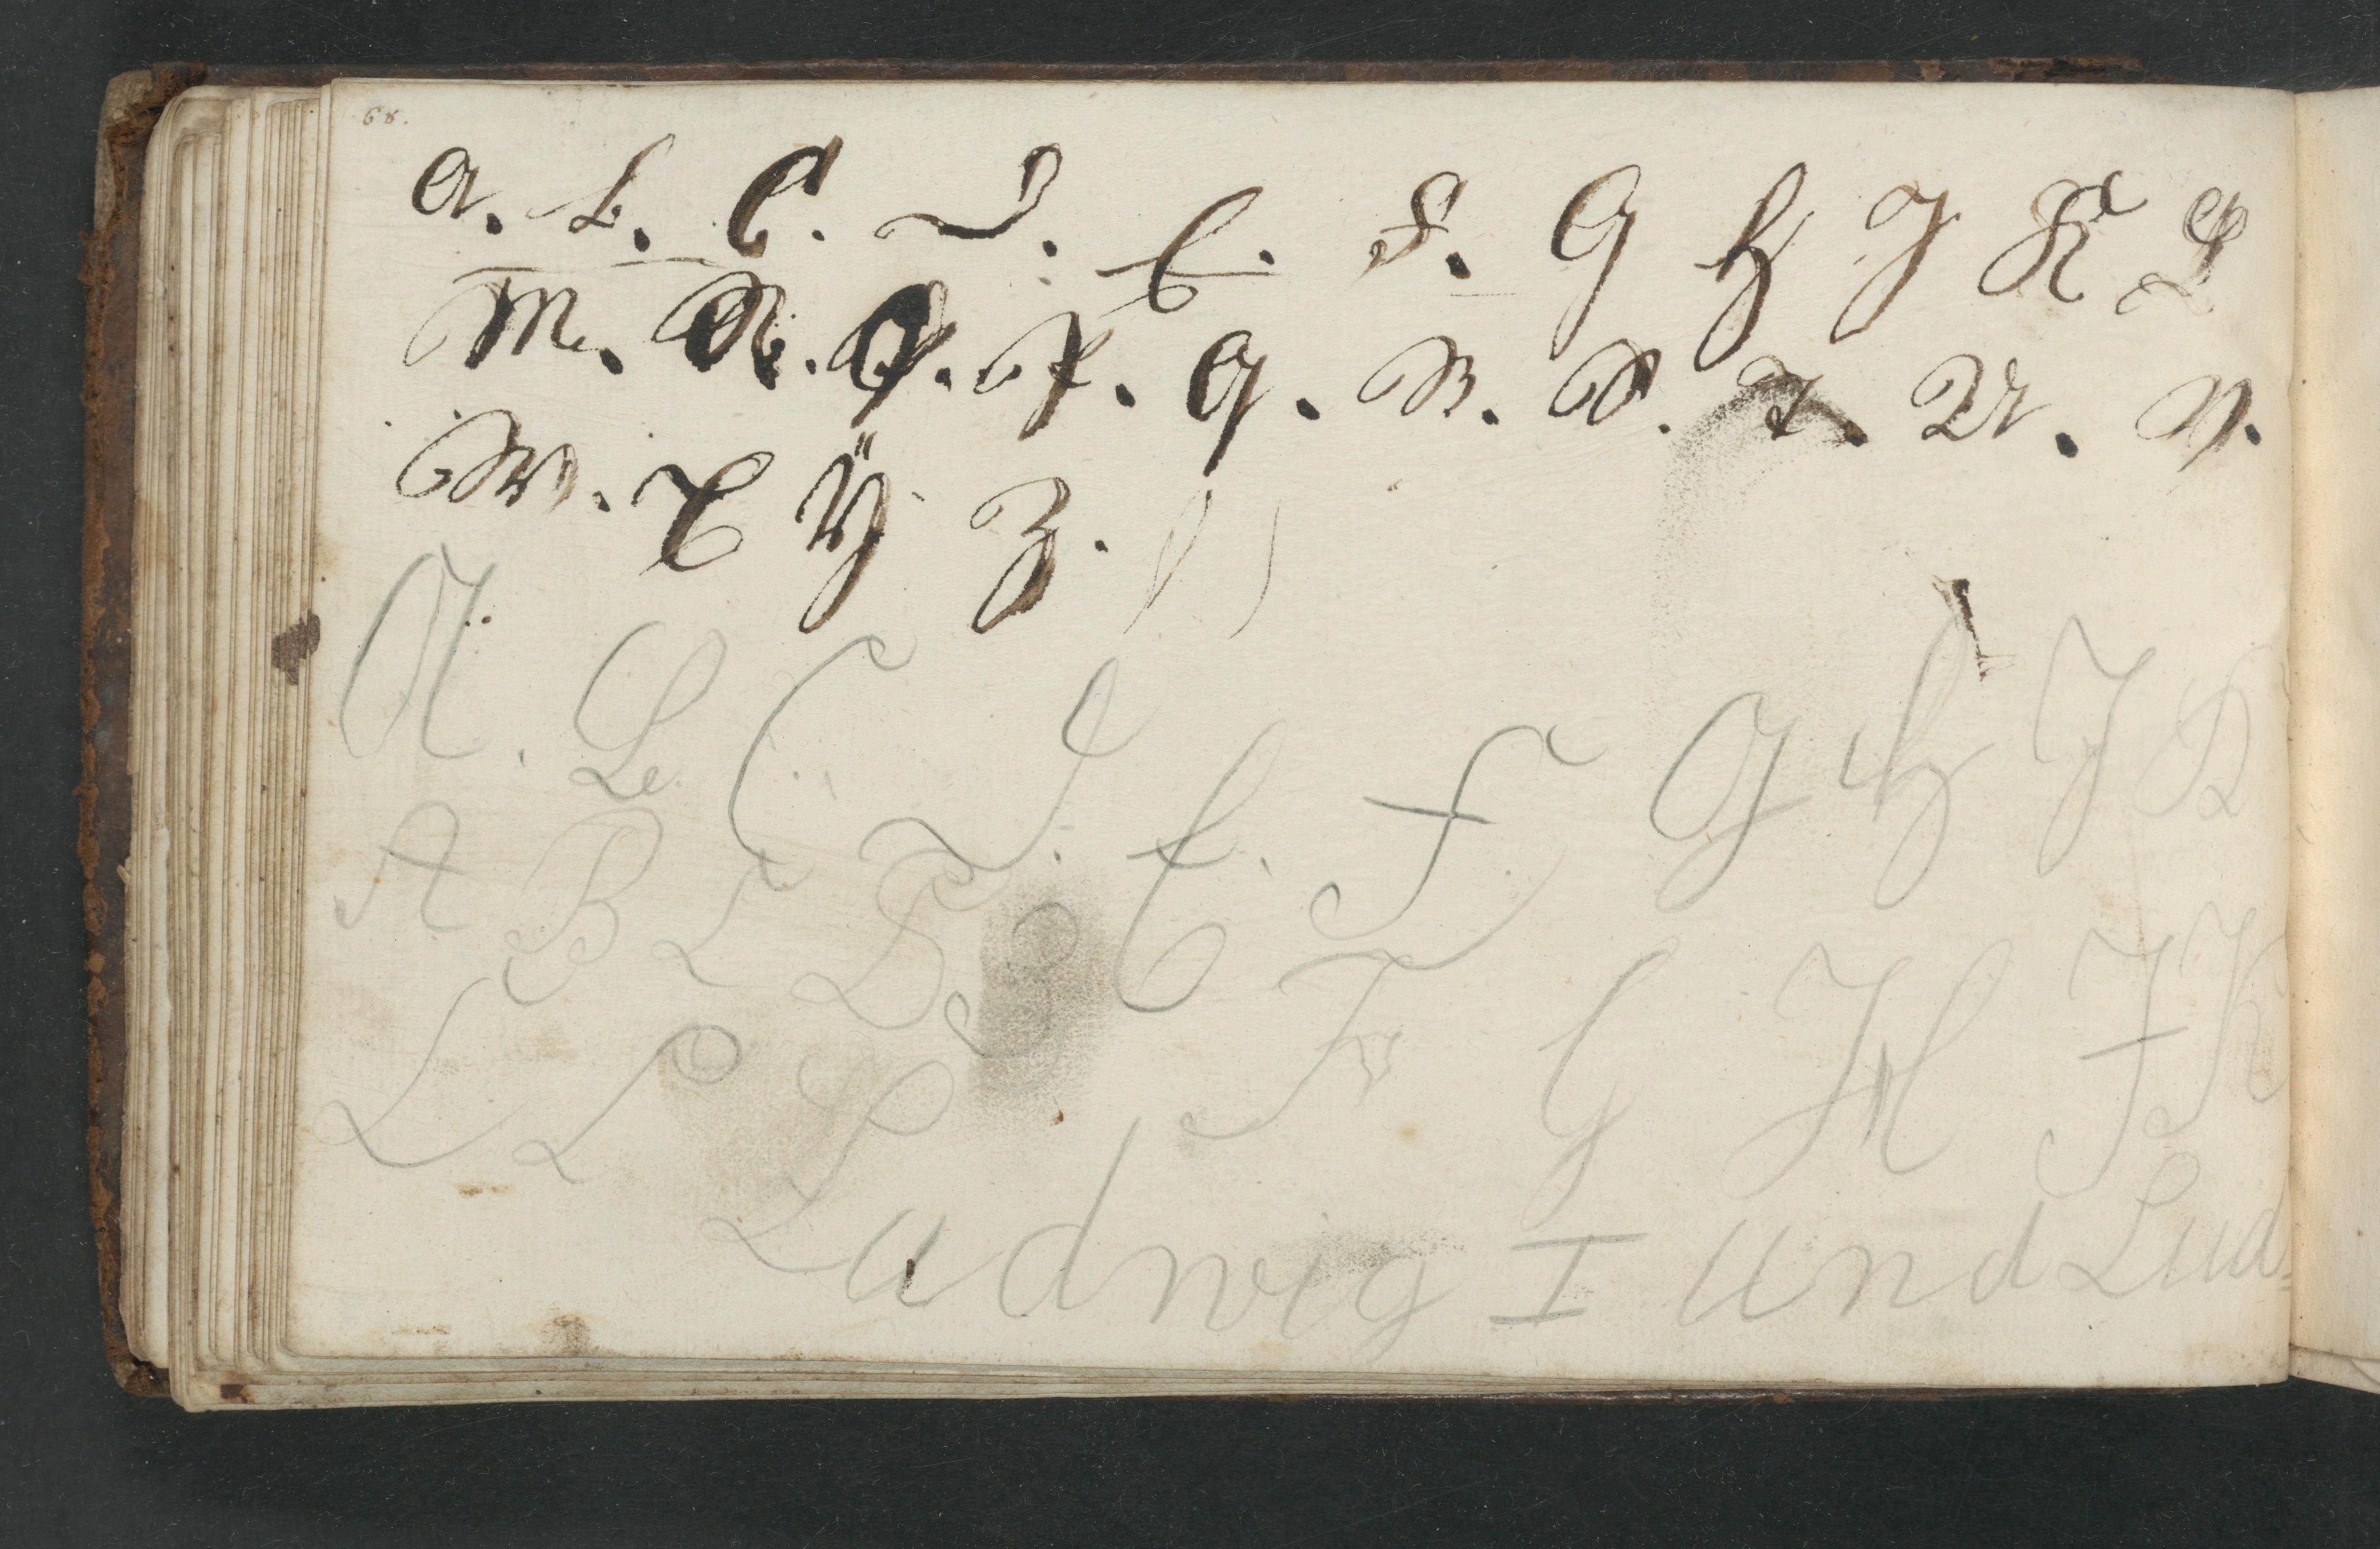 68.
A. B. C. D. E. F. G H J K L
M. N. O. P. Q. R. S. T. U. V.
W. X Ÿ Z.
A. B C D. E. F G H J K
A B C D E F G H J K
L L L
Ludwig I und Lud=